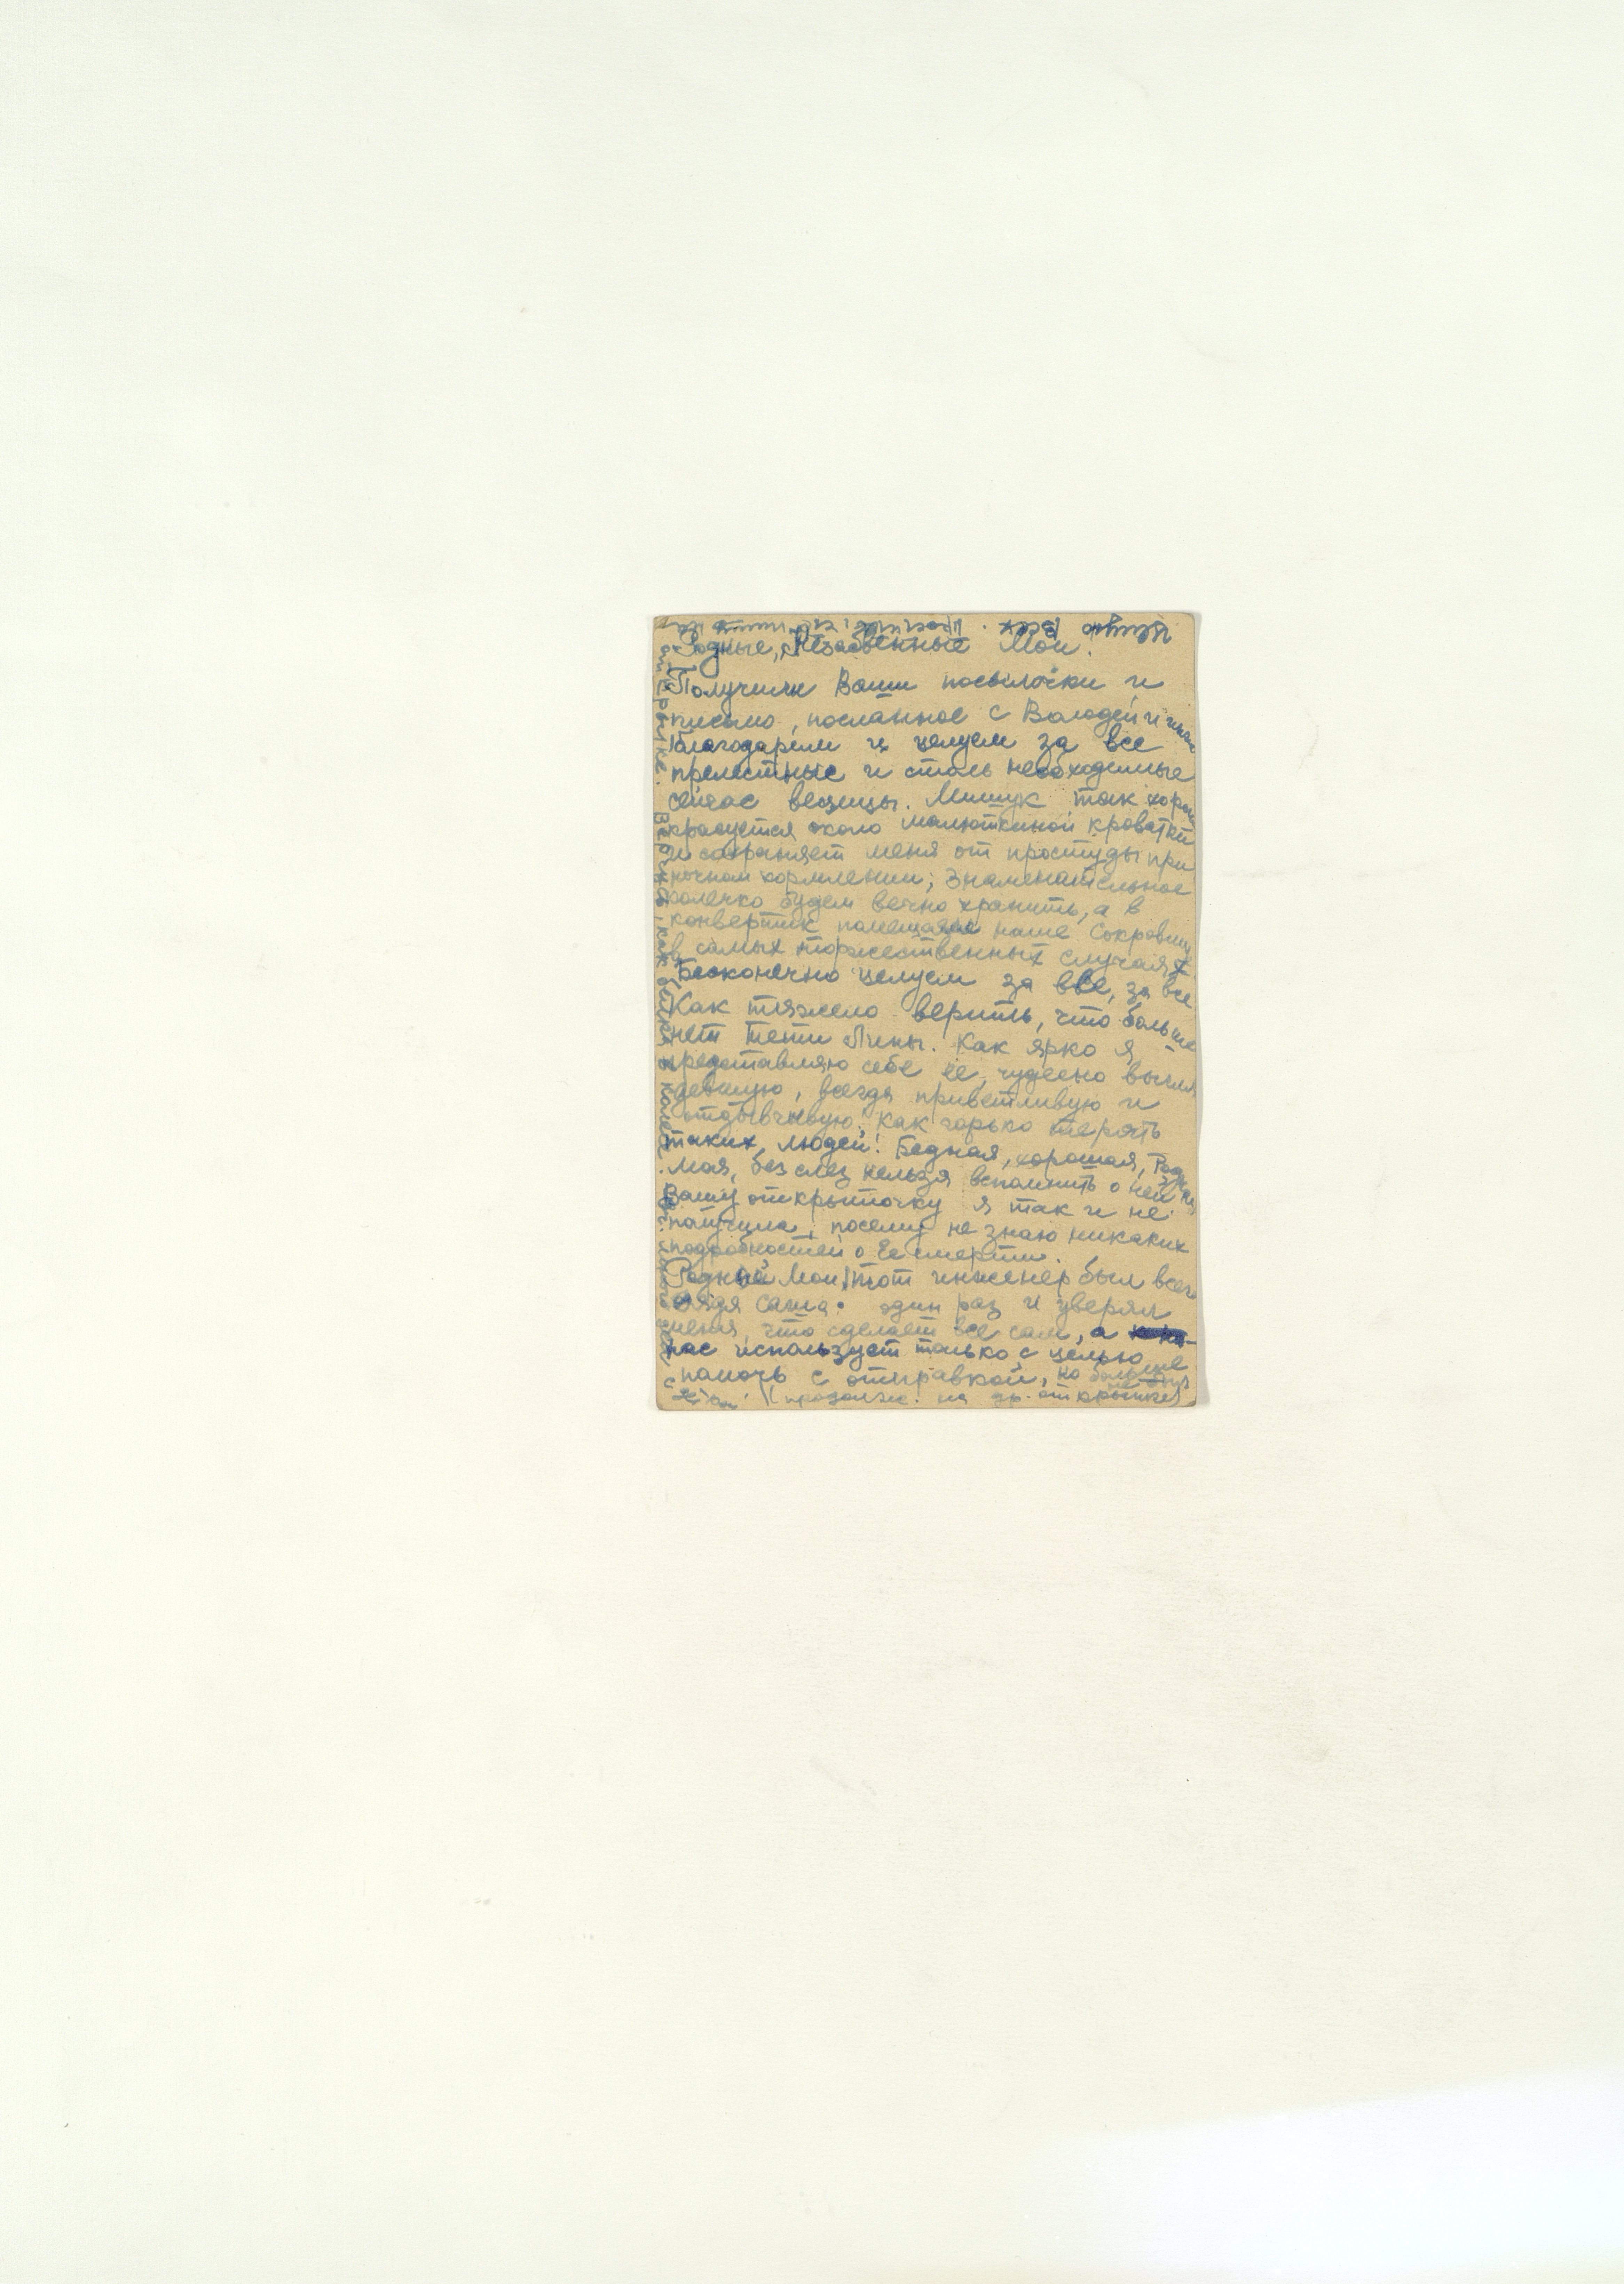 Родные, Незабвенные Мои!
Получили Ваши посылочки и
письмо, посланное с Володей и
Благодарим и целуем за все
прелестные и столь необходимые
сейчас вещицы. Мишук так хорош
красуется около малюткиной кроватки
и сохраняет меня от простуды при
ночном кормлении; Знаменательное
колечко будем вечно хранить, а в
конвертик помещаем наше сокровище
в самых торжественных случаях
Бесконечно целуем за все, за все
Как тяжело верить, что больше
нет тети Лины. Как ярко я
представляю себе ее, чудесно выгля-
девшую, всегда приветливую и
отзывчивую; как горько терять
таких людей! Бедная, хорошая, Родная
моя, без слез нельзя вспомнить о ней
Вашу открыточку я так и не
получила, посему не знаю никаких
подробностей о Ее смерти.
Родной Мой тот инженер был всего
дядя Саша. один раз и уверял
меня, что сделает все сам, а
нас использует только с целью
помочь с отправкой, но больше не
(продолж. на др. открытке)
открытке. Верчусь, как белка в колесе.
Целую Всех.